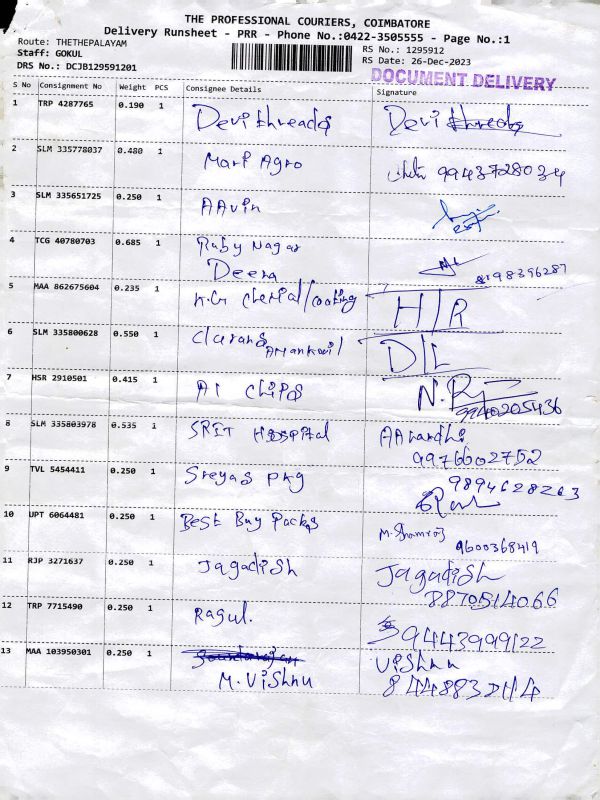 THE PROFESSIONAL COURIERS, COIMBATORE
Delivery Runsheet - PRR - Phone No.:0422-3505555 - Page No.:1
Route: THETHEPALAYAM
RS No.: 1295912
Staff: GOKUL
RS Date: 26-Dec-2023
DRS No.: DCJB129591201
DOCUMENT DELIVERY
S No Consignment No Weight PCS Consignee Details Signature
1 TRP 4287765 0.190 1 Devi threads Devi threads
2 SLM 335778037 0.480 1 Mari Agro 9943728034
3 SLM 335651725 0.250 1 AAvin
4 TCG 40780703 0.685 1 Ruby Nagar
Deena 8198396287
5 MAA 862675604 0.235 1 /cooting H/R
6 SLM 335800628 0.550 1 D/L
7 HSR 2910501 0.415 1 A1 chips N.R
9940205436
8 SLM 335803978 0.535 1 SRIT Hospital AAnandhi
9976602752
9 TVL 5454411 0.250 1 Sreyas pkg 9894628263
10 UPT 6064481 0.250 1 Best Buy Packs M.Shamroj
9600368419
11 RJP 3271637 0.250 1 Jagadish Jagadish
8870514066
12 TRP 7715490 0.250 1 Ragul. 9443999122
13 MAA 103950301 0.250 1 Vishnu
M.Vishnu